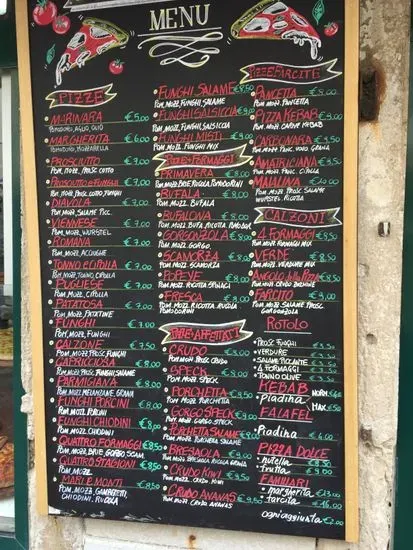 MENU
PIZZE
MARINARA €5,00
POMODORO, AGLIO, OLIO
MARGHERITA €6,00
POMODORO, MOZZARELLA
PROSCIUTTO €7,00
POM. MOZZ. PROSC. COTTO
PROSCIUTTO E FUNGHI
POM. MOZZ. PROSC. COTTO, FUNGHI
DIAVOLA €7,00
POM. MOZZ. SALAME PICC.
VIENNESE €7,00
POM. MOZZ. WURSTEL
ROMANA €7,00
POM. MOZZ. ACCIUGHE
TONNO E CIPOLLA
POM. MOZZ. TONNO E CIPOLLA
PUGLIESE €7,00
POM. MOZZ. CIPOLLA
PATATOSA €7,00
POM. MOZZ. PATATINE
FUNGHI €7,00
POM. MOZZ. FUNGHI
CALZONE €7,50
POM. MOZZ. PROSC. FUNGHI
CAPRICCIOSA €8,00
POM. MOZZ. PROSC. FUNGHI
PARMIGIANA €8,00
POM. MOZZ. MELANZANE, GRANA
FUNGHI PORCINI €8,00
POM. MOZZ. PORCINI
FUNGHI CHIODINI €8,00
POM. MOZZ. CHIODINI
QUATTRO FORMAGGI €8,50
POM. MOZZ. BRIE, GORGO, SCAM.
QUATTRO STAGIONI €8,50
POM. MOZZ.
MARI E MONTI €8,50
POM. MOZZ. GAMBERETTI,
CHIODINI, RUCOLA
FUNGHI SALAME €8,50
POM. MOZZ. FUNGHI, SALAME
FUNGHI SALSICCIA
POM. MOZZ. FUNGHI, SALSICCIA
FUNGHI MISTI
POM. MOZZ. FUNGHI MIX
PIZZE + FORMAGGI
PRIMAVERA €8,00
BUFALA €8,00
POM. MOZZ. BUFALA
BUFALONA €8,00
GORGONZOLA €8,00
POM. MOZZ. GORGO
SCAMORZA €8,00
POM. MOZZ. SCAMORZA
POPEYE €8,00
POM. MOZZ. RICOTTA SPINACI
FRESCA €8,00
POM. MOZZ. RICOTTA RUCOLA
POMODORINI
PIZZE + AFFETTATI
CRUDO €8,00
POM. MOZZ. PROSC. CRUDO
SPECK €8,00
POM. MOZZ. SPECK
PORCHETTA €8,50
POM. MOZZ. PORCHETTA
GORGO SPECK €8,50
POM. MOZZ. GORGO SPECK
PORCHETTA SALAME €8,50
BRESAOLA €8,50
POM. MOZZ. BRESAOLA RUCOLA GRANA
CRUDO KIWI €8,50
POM. MOZZ. PROSC. CRUDO KIWI
CRUDO ANANAS €8,50
POM. MOZZ. CRUDO ANANAS
PIZZE FARCITE
PANCETTA €8,00
POM. MOZZ. PANCETTA
PIZZA KEBAB €8,00
POM. MOZZ. CARNE KEBAB
CARBONARA
POM. MOZZ. PANC. UOVO, GRANA
AMATRICIANA
POM. MOZZ. PANC. CIPOLLA
MAIALONA
POM. MOZZ. PROSC. SALAME
WURSTEL RICOTTA
CALZONI
4 FORMAGGI €8,50
POM. MOZZ. FORMAGGI MIX
VERDE €8,50
POM. MOZZ. VERDURE MIX
ANGOLO della PIZZA
FARCITO €8,50
POM. MOZZ. SALAME PROSC
GORGONZOLA
ROTOLO
• PROSC. FUNGHI €5,50
• VERDURE €5,50
• SALAME PICCANTE €5,50
• 4 FORMAGGI €5,50
• TONNO OLIVE €5,50
KEBAB
Piadina
MAX €5
FALAFEL
Piadina €4,00
PIZZA DOLCE
• nutella €8,00
• frutta €9,00
FAMILIARI
• margherita €13,00
• farcita €16,00
ogni aggiunta €2,00